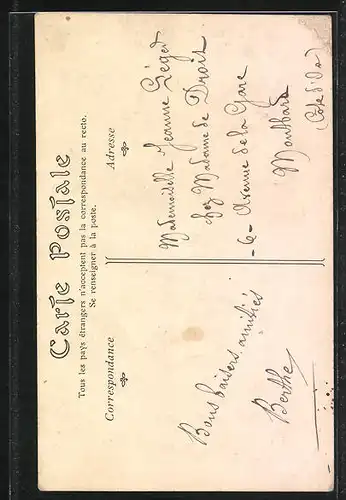 Carte Postale
Tous les pays étrangers n'acceptent pas la correspondance au recto.
Se renseigner à la poste.
Correspondance
Adresse
Bons baisers. amitiés
Berthe
Mademoiselle Jeanne Léger
chez Madame de Droit
-6- Avenue de la Gare
Montbard
(Côte d'Or)